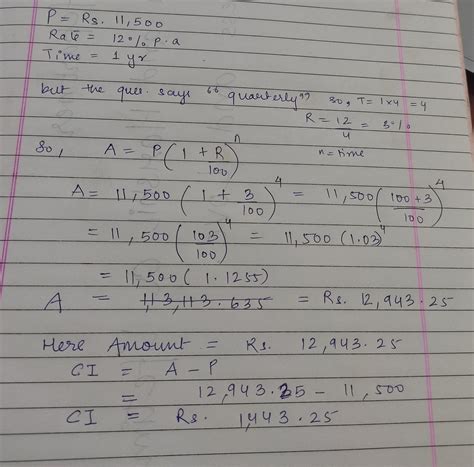 P = Rs. 11,500
Rate = 12% p.a
Time = 1 yr
but the ques. says "quarterly" so, T = 1x4 = 4
R = 12/4 = 3%
n = time
So, A = P(1 + R/100)^n
A = 11,500(1 + 3/100)^4 = 11,500(100+3/100)^4
= 11,500(103/100)^4 = 11,500(1.03)^4
= 11,500(1.1255)
A = 113,113.635 = Rs. 12,943.25
Here Amount = Rs. 12,943.25
CI = A - P
= 12,943.25 - 11,500
CI = Rs. 1,443.25